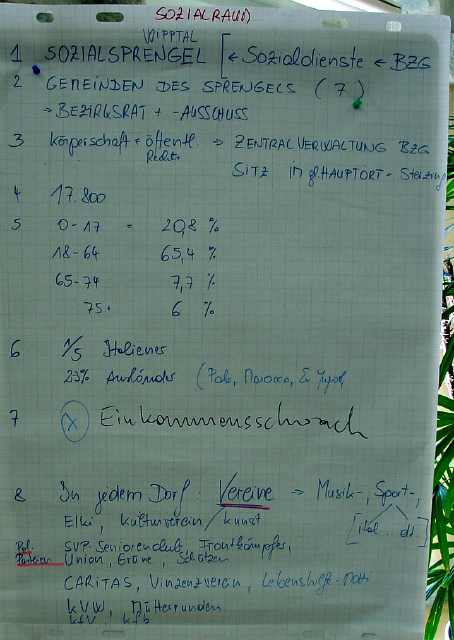 SOZIALRAUM
WIPPTAL
1 SOZIALSPRENGEL [ ← Sozialdienste ← BZG
2 GEMEINDEN DES SPRENGELS ( 7 )
→ BEZIRKSRAT + -AUSSCHUSS
3 Körperschaft öffentl. ⇒ ZENTRALVERWALTUNG BZG
Rechts
SITZ im gl. HAUPTORT - Sterzing
4 17.800
5 0-17 = 20,8 %
18-64 65,4 %
65-74 7,7 %
75+ 6 %
6 1/5 Italiener
23% Ausländer (Pak, Marocco, Ex Jugosl.
7 (X) Einkommensschwach
8 In jedem Dorf: Vereine → Musik-, Sport-,
Elki, Kulturverein / Kunst [ital. dt]
Pol. Parteien SVP-Seniorenclub, Frontkämpfer,
Union, Grüne, Schützen
CARITAS, Vinzenzverein, Lebenshilfe
KVW, Mütterrunden
KFV, kfb